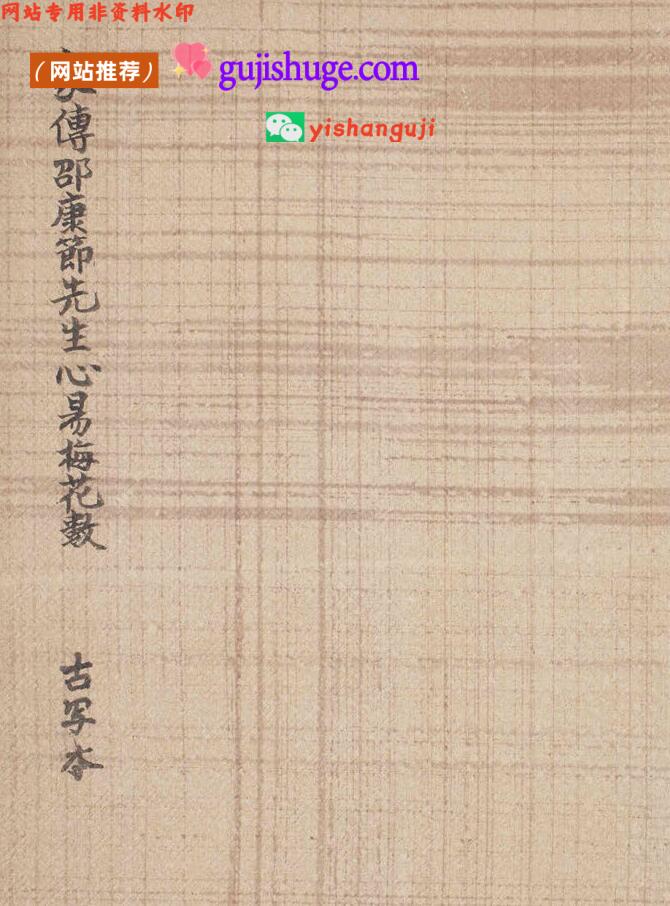 网站专用非资料水印
（网站推荐）
gujishuge.com
yishanguji
傳邵康節先生心易梅花數
古写本